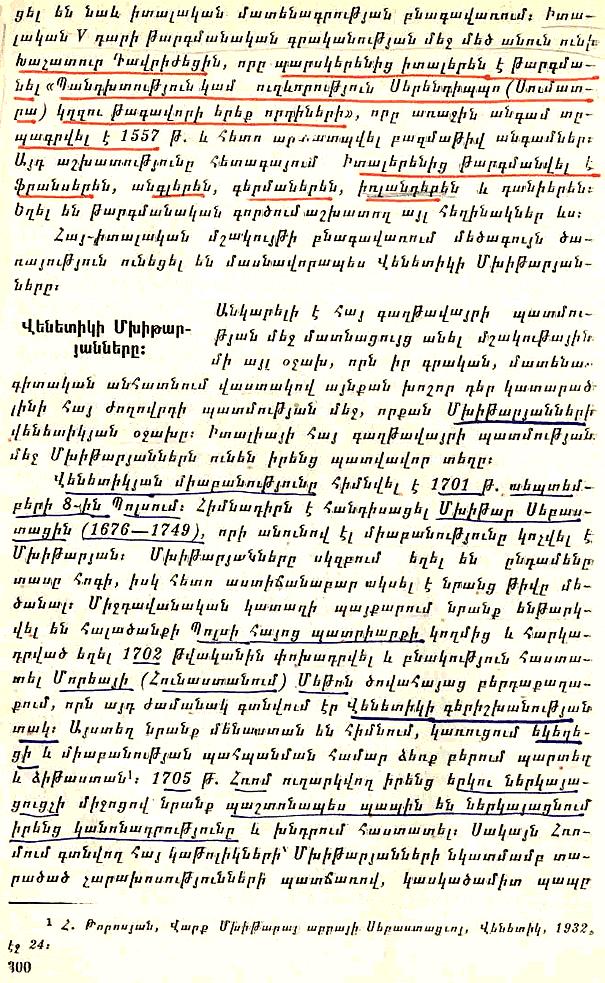 ցել են նաև իտալական մատենագրության բնագավառում։ Իտա-
լական V դարի թարգմանական գրականության մեջ մեծ անուն ունի
Խաչատուր Դավրիժեցին, որը պարսկերենից իտալերեն է թարգմա-
նել «Պանդխտություն կամ ուղևորություն Սերենդիպպո (Սումատ-
րա) կղզու թագավորի երեք որդիների», որը առաջին անգամ տը-
պագրվել է 1557 թ. և հետո արտատպվել բազմաթիվ անգամներ։
Այդ աշխատությունը հետագայում Իտալերենից թարգմանվել է
ֆրանսերեն, անգլերեն, գերմաներեն, հոլանդերեն և դանիերեն։
Եղել են թարգմանական գործում աշխատող այլ հեղինակներ ևս։
Հայ-իտալական մշակույթի բնագավառում մեծագույն ծա-
ռայություն ունեցել են մասնավորապես Վենետիկի Մխիթարյան-
ները։
Վենետիկի Մխիթար-
յանները։
Անկարելի է հայ գաղթավայրի պատմու-
թյան մեջ մատնացույց անել մշակութային
մի այլ օջախ, որն իր գրական, մատենա-
գիտական անհատնում վաստակով այնքան խոշոր դեր կատարած
լինի հայ ժողովրդի պատմության մեջ, որքան Մխիթարյանների
վենետիկյան օջախը։ Իտալիայի հայ գաղթավայրի պատմության
մեջ Մխիթարյաններն ունեն իրենց պատվավոր տեղը։
Վենետիկյան միաբանությունը հիմնվել է 1701 թ. սեպտեմ-
բերի 8-ին Պոլսում։ Հիմնադիրն է հանդիսացել Մխիթար Սեբաս-
տացին (1676—1749), որի անունով էլ միաբանությունը կոչվել է
Մխիթարյան։ Մխիթարյանները սկզբում եղել են ընդամենը
տասը հոգի, իսկ հետո աստիճանաբար սկսել է նրանց թիվը մե-
ծանալ։ Միջդավանական կատաղի պայքարում նրանք ենթարկ-
վել են հալածանքի Պոլսի հայոց պատրիարքի կողմից և հարկա-
դրված եղել 1702 թվականին փոխադրվել և բնակություն հաստա-
տել Մորեայի (Հունաստանում) Մեթոն ծովահայաց բերդաքաղա-
քում, որն այդ ժամանակ գտնվում էր Վենետիկի գերիշխանության
տակ։ Այստեղ նրանք մենաստան են հիմնում, կառուցում եկեղե-
ցի և միաբանության պահպանման համար ձեռք բերում պարտեզ
և ձիթաստան¹։ 1705 թ. Հռոմ ուղարկվող իրենց երկու ներկայա-
ցուցչի միջոցով նրանք պաշտոնապես պապին են ներկայացնում
իրենց կանոնադրությունը և խնդրում հաստատել։ Սակայն Հռո-
մում գտնվող հայ կաթոլիկների՝ Մխիթարյանների նկատմամբ տա-
րածած չարախոսությունների պատճառով, կասկածամիտ պապը
¹ Հ. Թորոսյան, Վարք Մխիթարայ աբբայի Սեբաստացւոյ, Վենետիկ, 1932,
էջ 24։
300